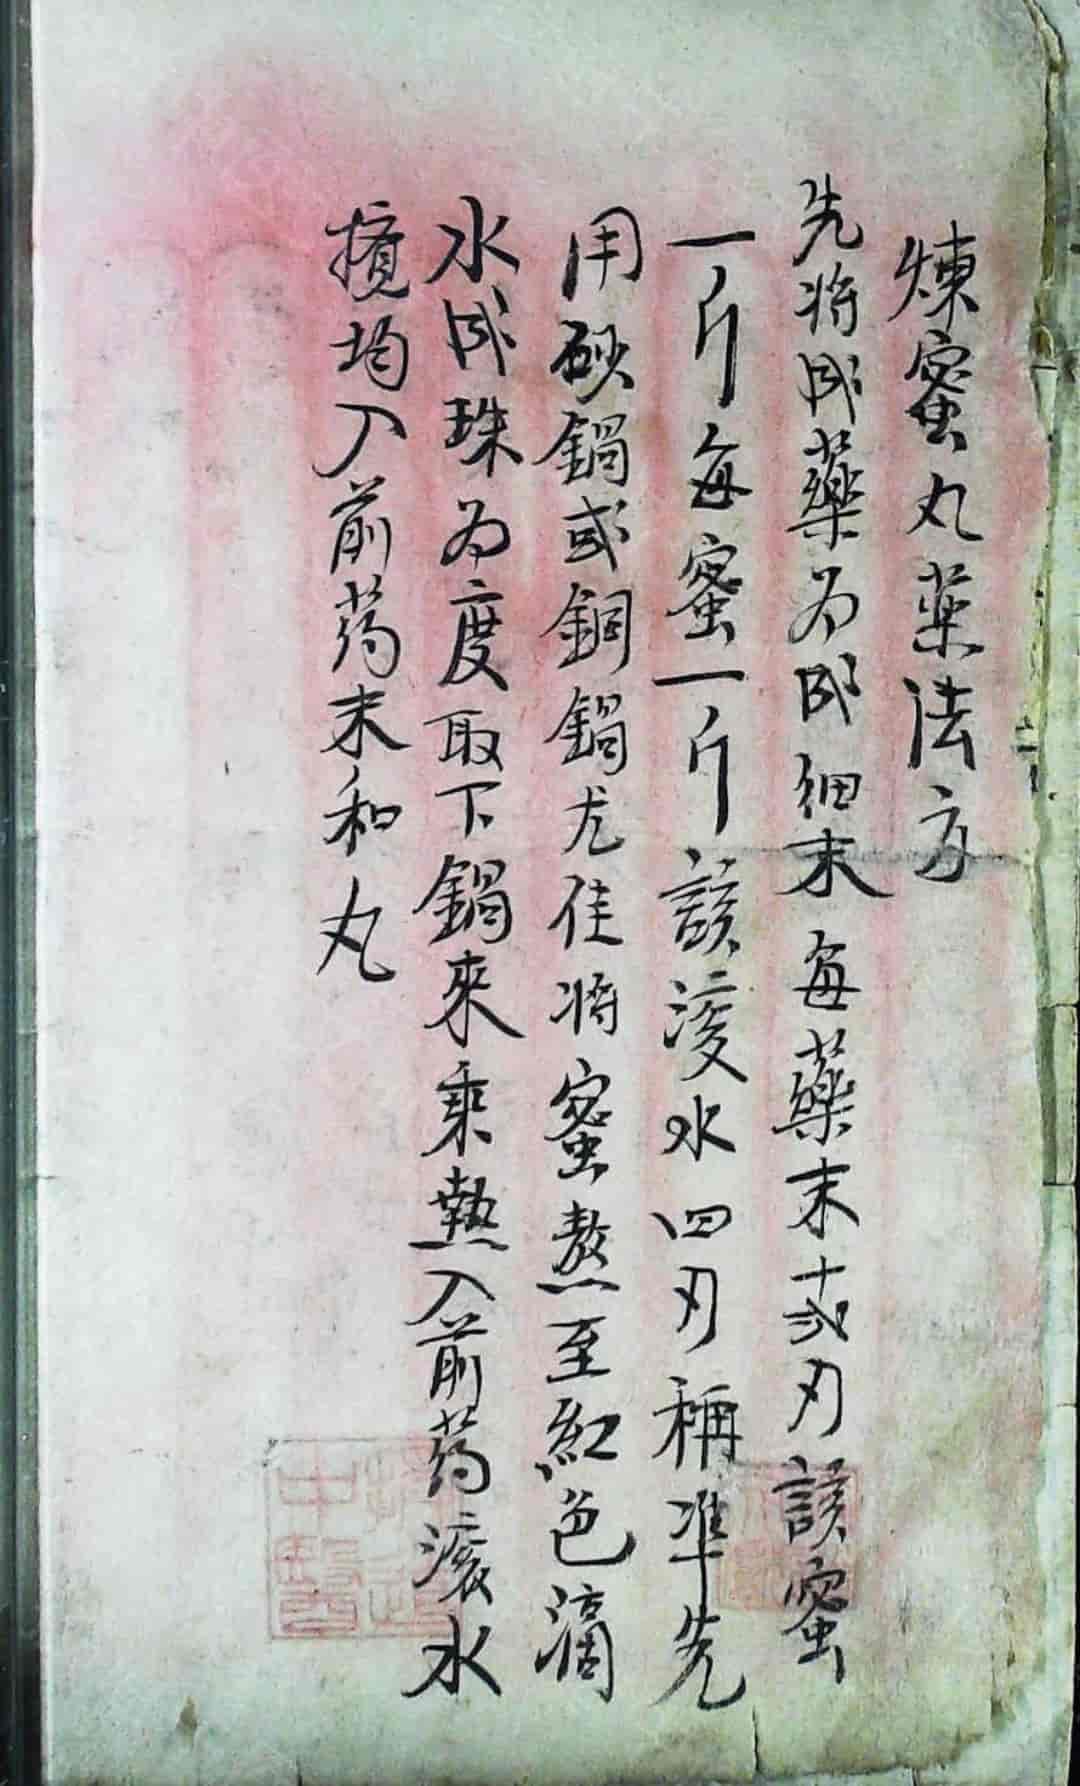 煉蜜丸藥法方
先将成藥为成细末每藥末十弍刄該蜜
一斤每蜜一斤該滾水四刄稱準先
用砂鍋或銅鍋尤佳将蜜熬至紅色滴
水成珠为度取下鍋來乘熱入前药滚水
攪均入前药末和丸
中醫